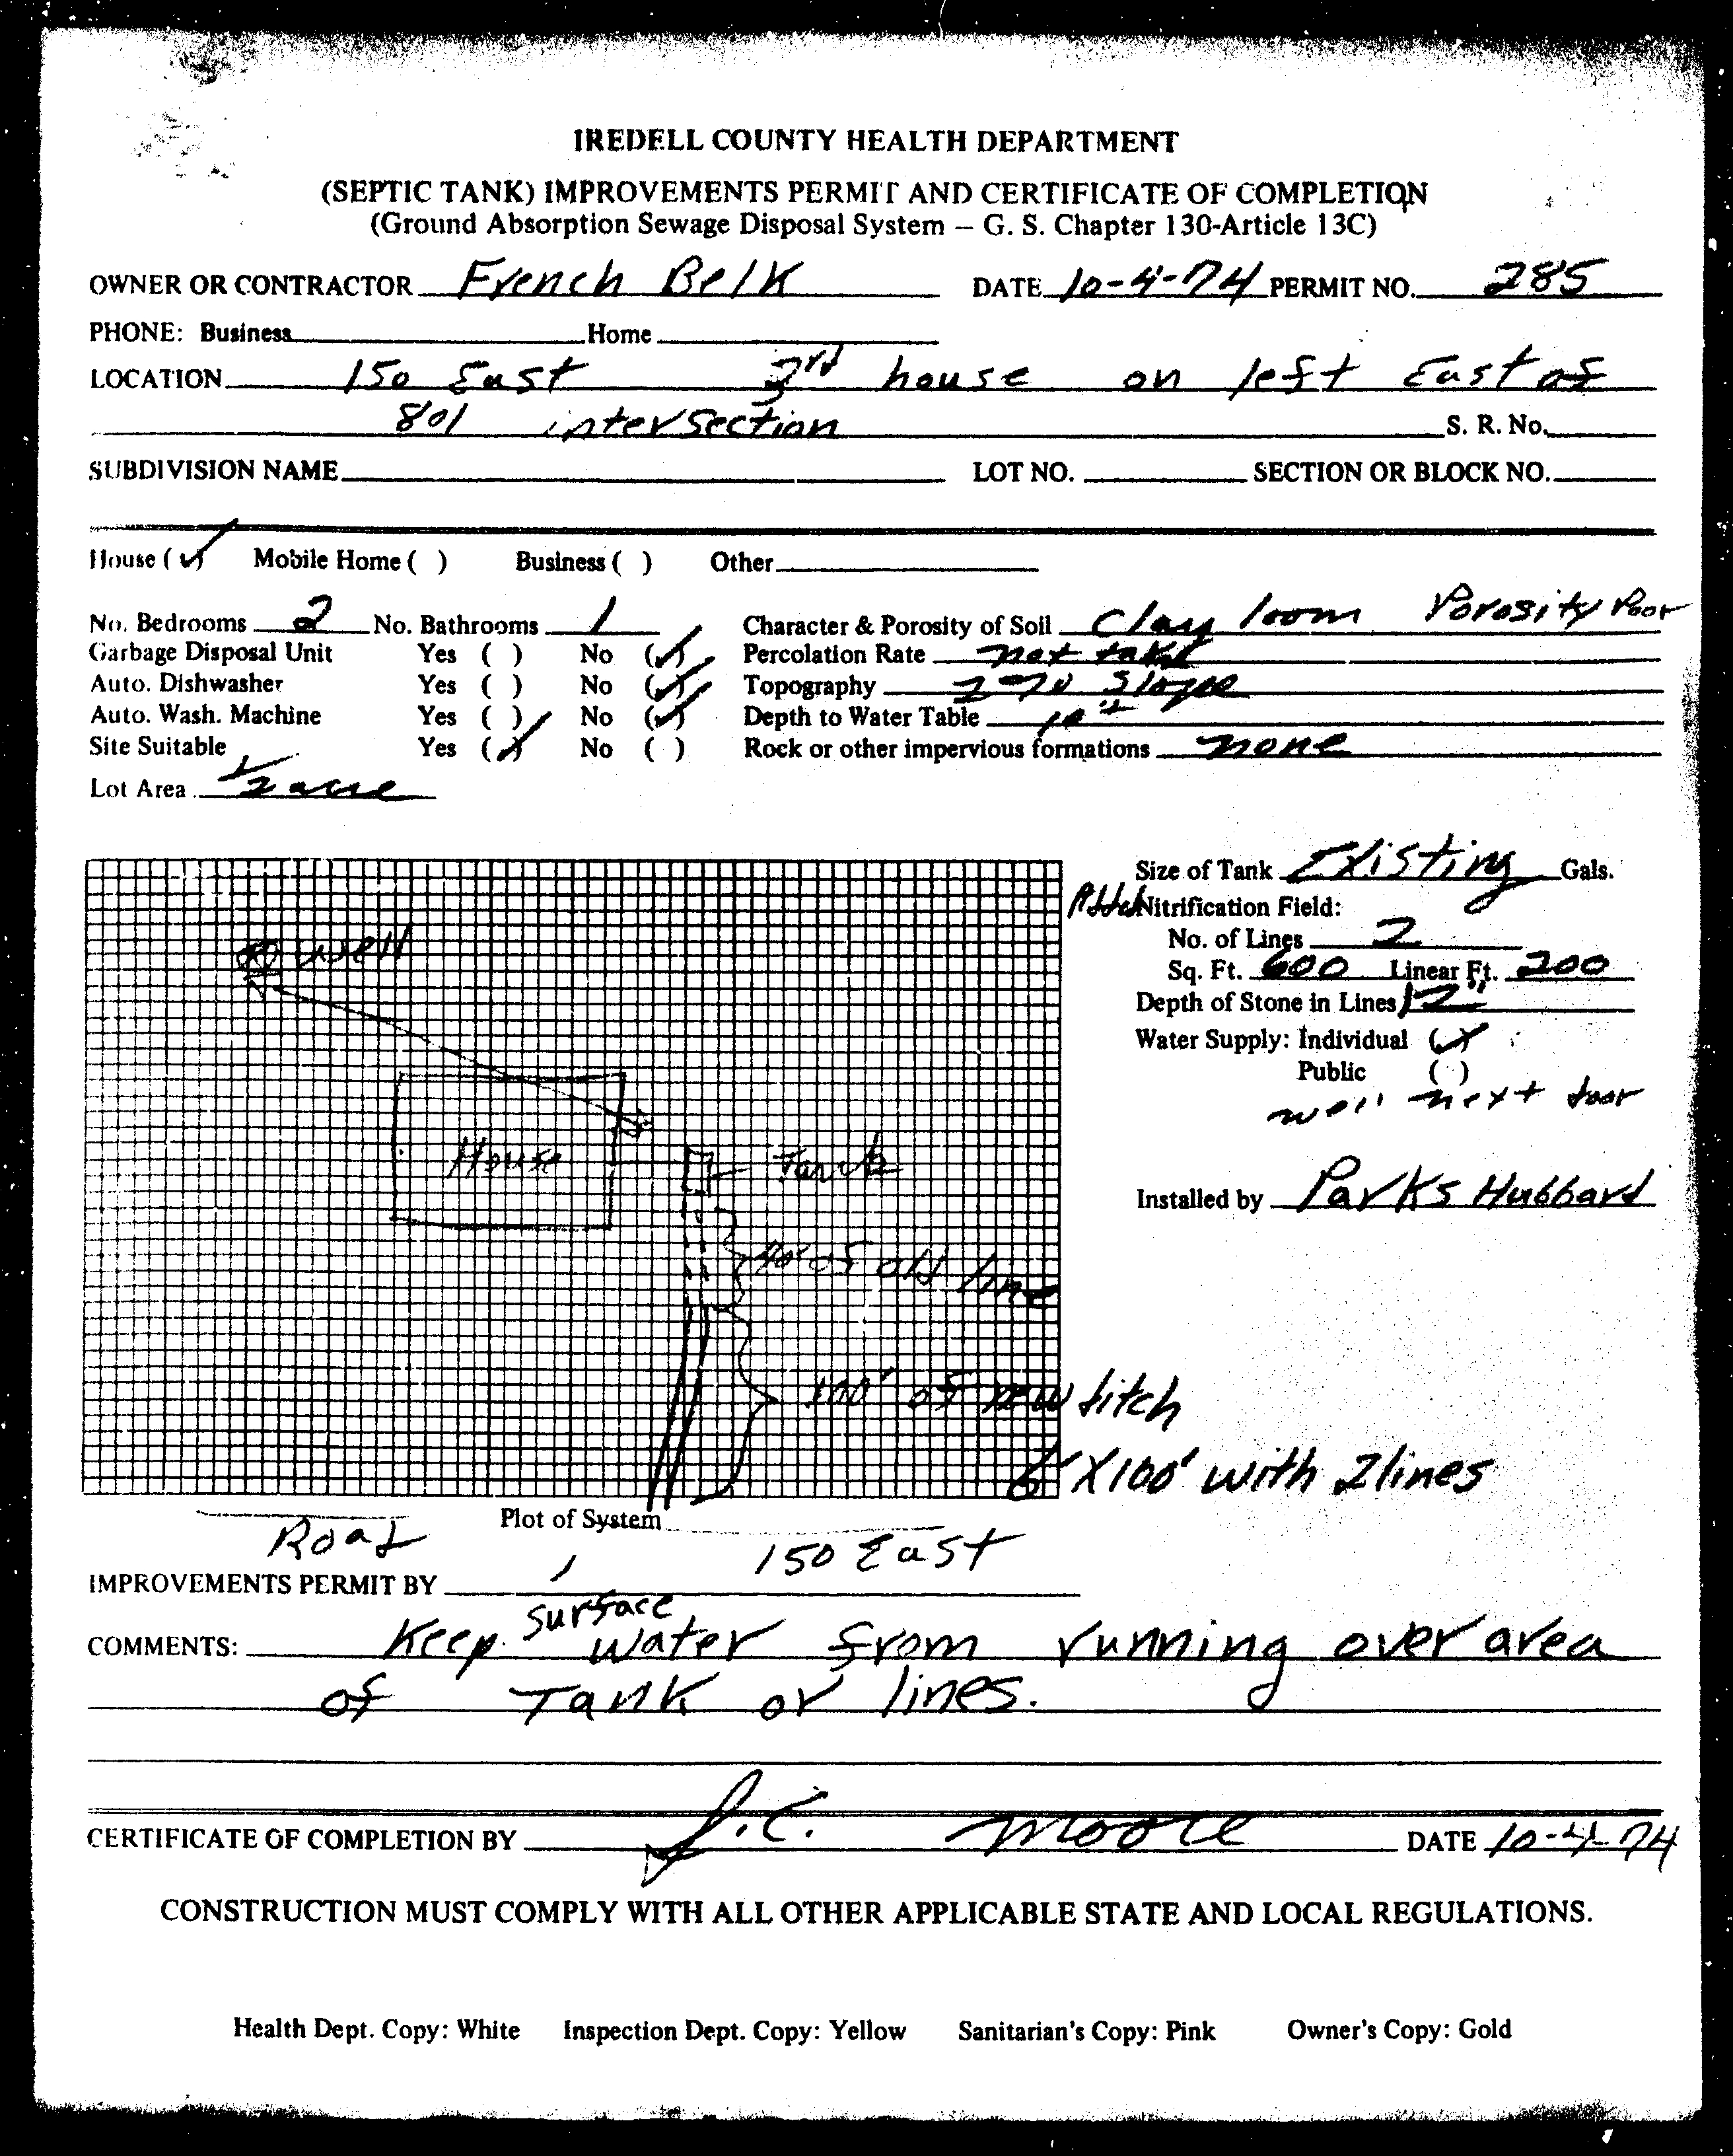 IREDELL COUNTY HEALTH DEPARTMENT
(SEPTIC TANK) IMPROVEMENTS PERMIT AND CERTIFICATE OF COMPLETION
(Ground Absorption Sewage Disposal System – G. S. Chapter 130-Article 13C)
OWNER OR CONTRACTOR French Belk DATE 10-4-74 PERMIT NO. 285
PHONE: Business Home
LOCATION 150 East 3rd house on left East of
801 intersection S. R. No.
SUBDIVISION NAME LOT NO. SECTION OR BLOCK NO.
House (✓) Mobile Home ( ) Business ( ) Other
No. Bedrooms 2 No. Bathrooms 1 Character & Porosity of Soil Clay loom Porosity Poor
Garbage Disposal Unit Yes ( ) No (✓) Percolation Rate not taken
Auto. Dishwasher Yes ( ) No (✓) Topography Slope
Auto. Wash. Machine Yes ( ) No (✓) Depth to Water Table
Site Suitable Yes (✓) No ( ) Rock or other impervious formations none
Lot Area 1/2 acre
Size of Tank Existing Gals.
Nitrification Field:
No. of Lines 2
Sq. Ft. 600 Linear Ft. 200
Depth of Stone in Lines 12"
Water Supply: Individual (✓)
Public ( )
well next door
Installed by Parks Hubbard
well
House
Tank
of old line
100' of new ditch
6' X 100' with 2 lines
Plot of System
Road 150 East
IMPROVEMENTS PERMIT BY
COMMENTS: Keep surface water from running over area
of Tank or lines.
CERTIFICATE OF COMPLETION BY J.C. Moore DATE 10-4-74
CONSTRUCTION MUST COMPLY WITH ALL OTHER APPLICABLE STATE AND LOCAL REGULATIONS.
Health Dept. Copy: White Inspection Dept. Copy: Yellow Sanitarian's Copy: Pink Owner's Copy: Gold